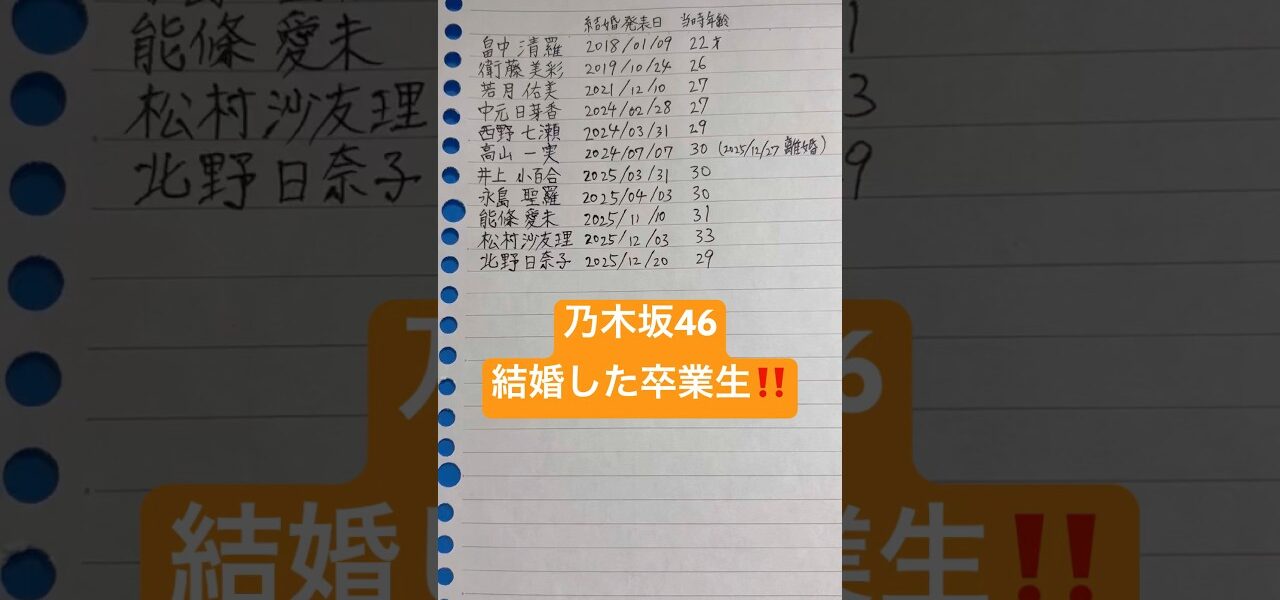 結婚発表日 当時年齢
畠中清羅 2018/01/09 22才
衛藤美彩 2019/10/24 26
若月佑美 2021/12/10 27
中元日芽香 2024/02/28 27
西野七瀬 2024/03/31 29
高山一実 2024/07/07 30 (2025/12/27 離婚)
井上小百合 2025/03/31 30
永島聖羅 2025/04/03 30
能條愛未 2025/11/10 31
松村沙友理 2025/12/03 33
北野日奈子 2025/12/20 29
乃木坂46
結婚した卒業生‼
能條愛未
松村沙友理
北野日奈子
1
3
9
乃 46
結婚し 業生‼